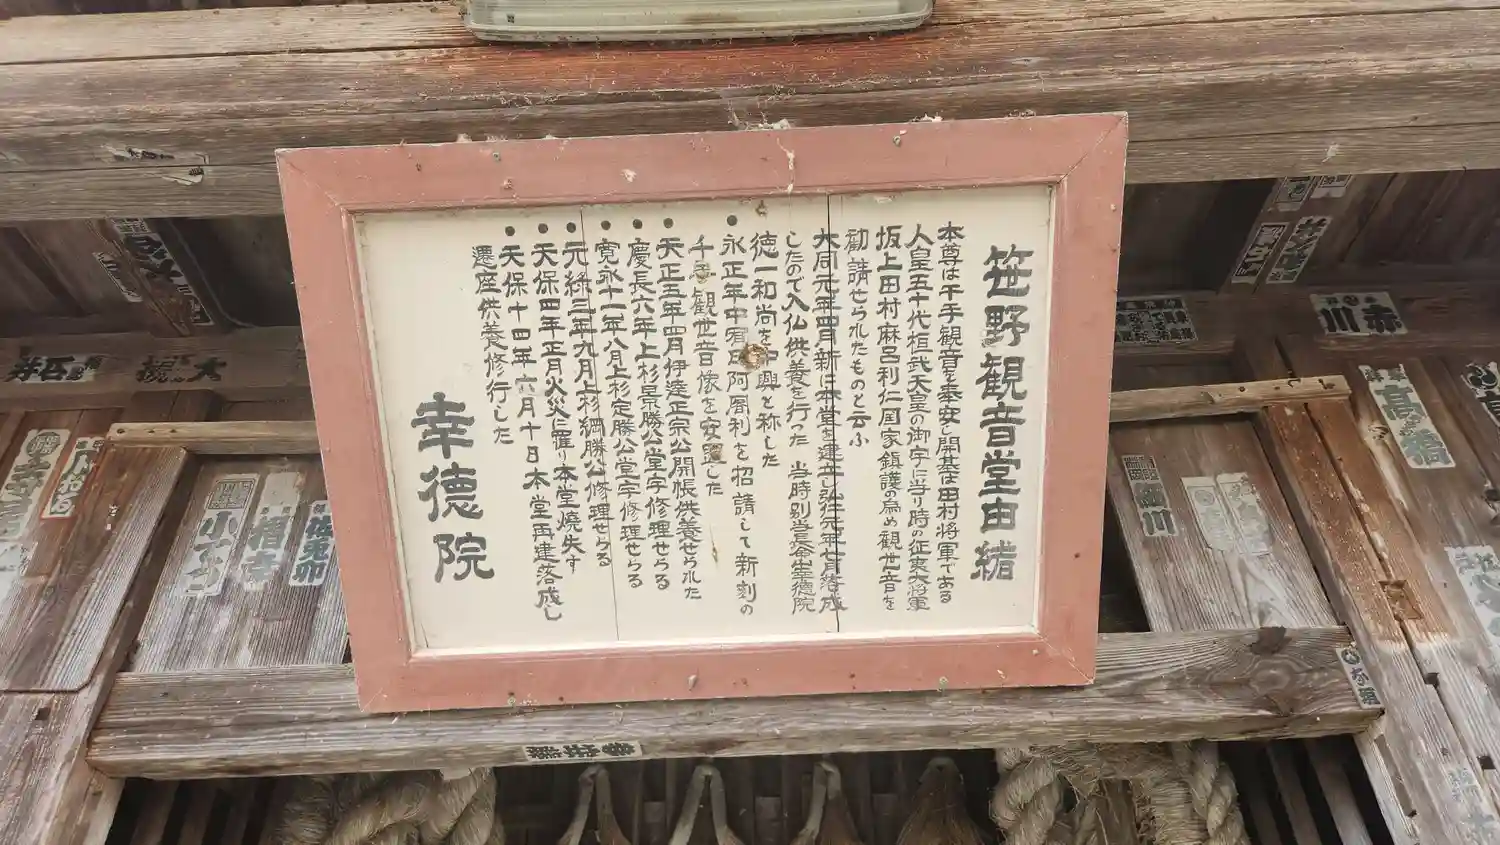 笹野観音堂由緒
本尊は千手観音を奉安し開基は田村将軍である
人皇五十代桓武天皇の御宇に当り時の征東大将軍
坂上田村麻呂利仁国家鎮護の為め観世音を
勧請せられたものと云ふ
大同元年四月新に本堂を建立し弘仁元年七月落成
したので入仏供養を行った 当時別当命幸徳院
徳一和尚を中興と称した
●永正年中宥 阿闍利を招請して新刻の
千手観世音像を安置した
●天正五年四月伊達正宗公開帳供養せられた
●慶長六年上杉景勝公堂宇修理せらる
●寛永十一年八月上杉定勝公堂宇修理せらる
●元緑三年九月上杉綱勝公修理せらる
●天保四年正月火災に罹り本堂焼失す
●天保十四年六月十日本堂再建落成し
遷座供養修行した
幸徳院
赤川
高橋
細川
小すみ
相幸
佐兎卯
石井
大槻